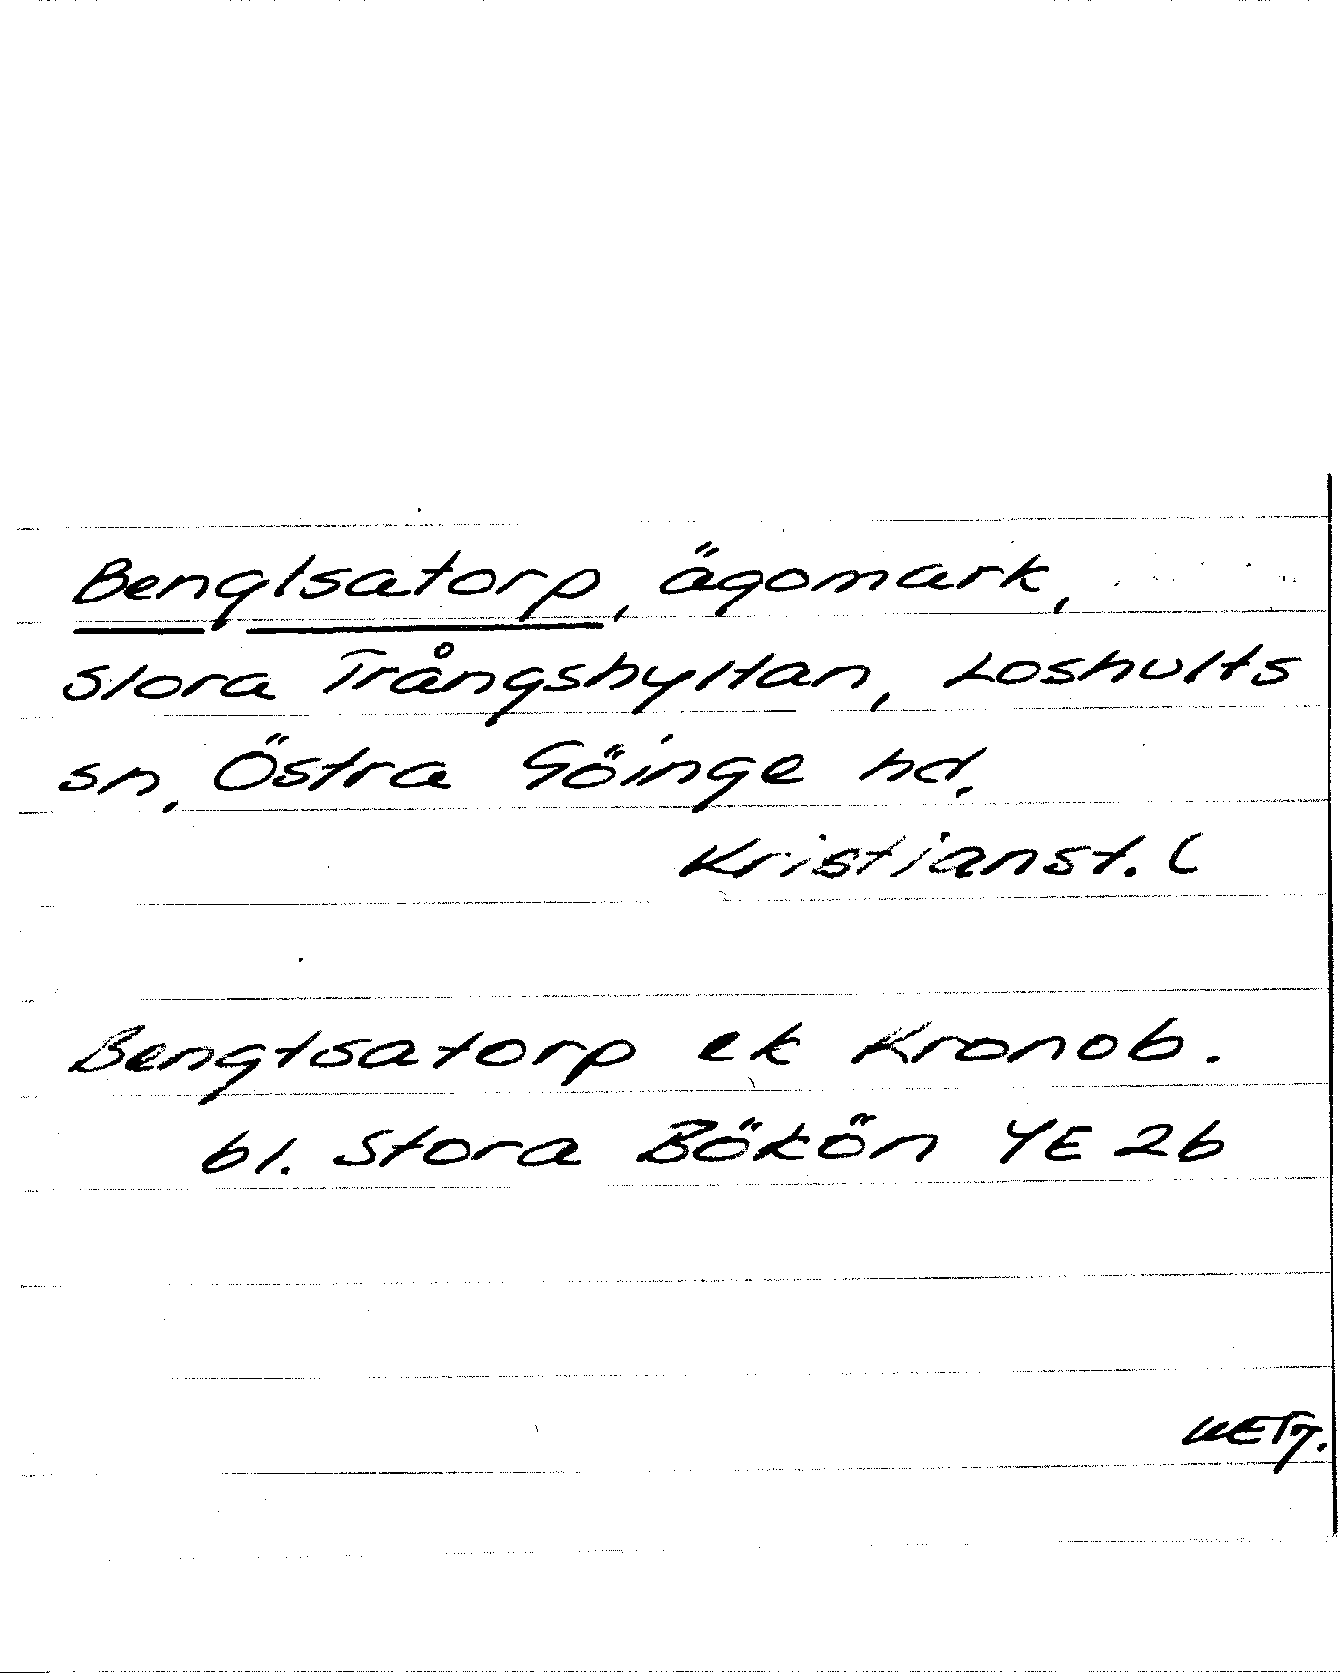 Bengtsatorp, ägomark,
Stora Trångshyltan, Loshults
sn, Östra Göinge hd.
Kristianst. l
Bengtsatorp ek Kronob.
bl. Stora Bökön 4E 2b